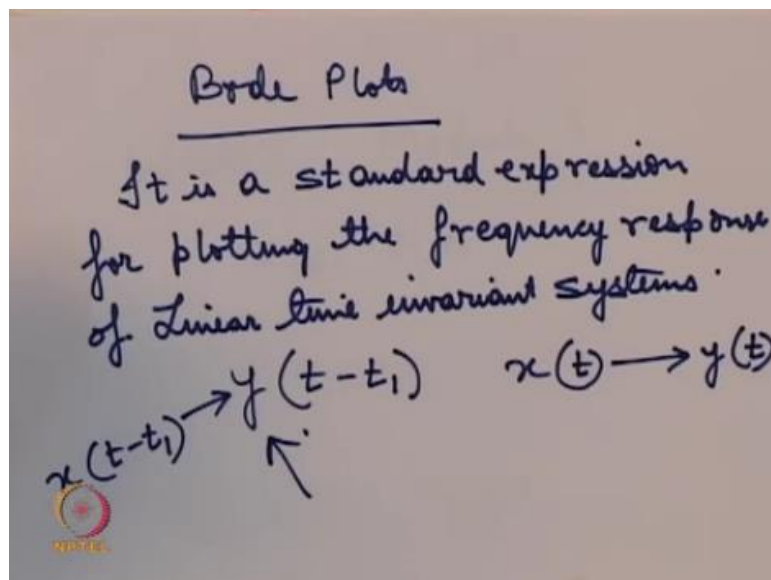 Bode Plots
It is a standard expression
for plotting the frequency response
of Linear time invariant systems.
x(t-t₁) → y(t-t₁) x(t) → y(t)
NPTEL